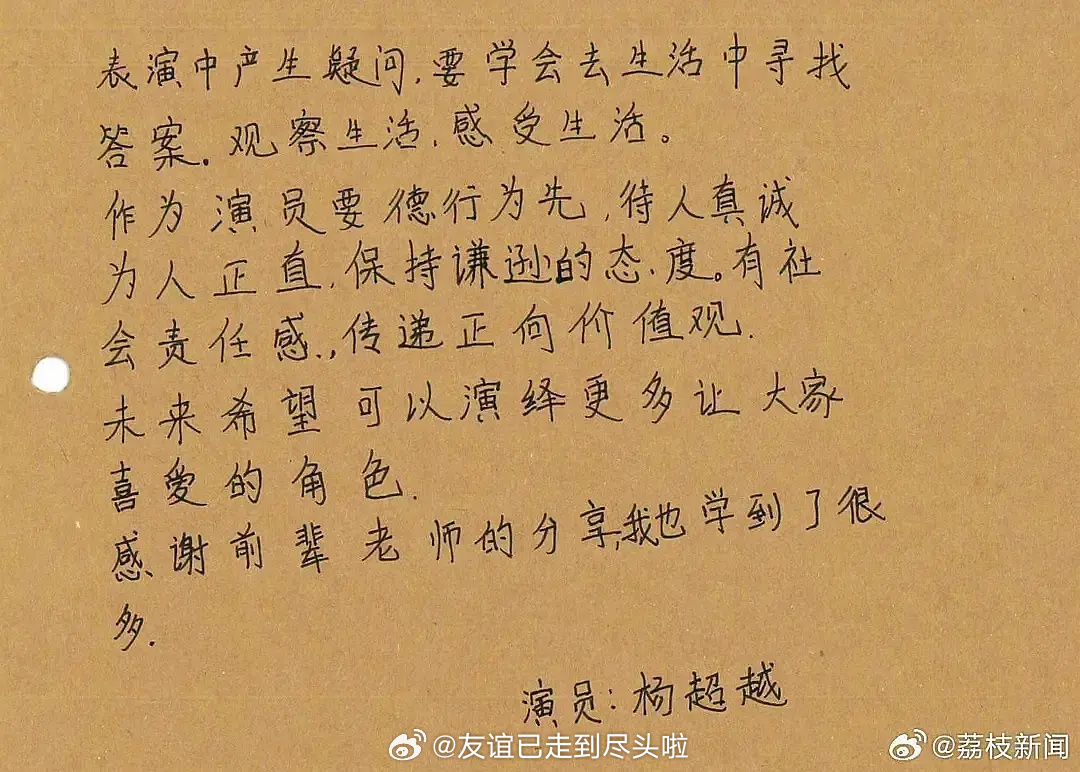 表演中产生疑问,要学会去生活中寻找
答案.观察生活,感受生活。
作为演员要德行为先,待人真诚
为人正直,保持谦逊的态度。有社
会责任感.,传递正向价值观.
未来希望可以演绎更多让大家
喜爱的角色.
感谢前辈老师的分享,我也学到了很
多.
演员:杨超越
@友谊已走到尽头啦
@荔枝新闻